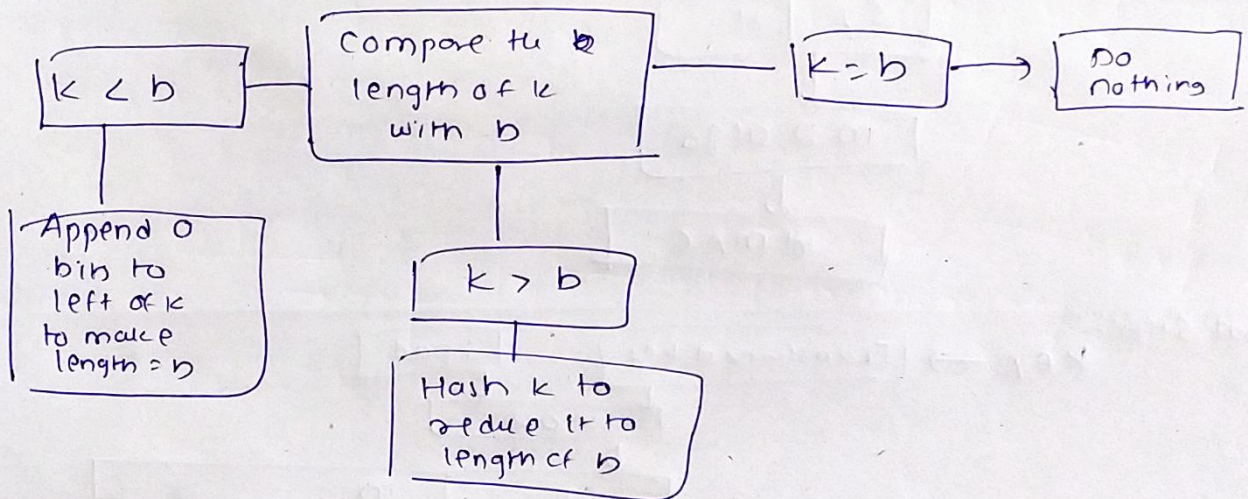 compare the
length of k
with b
k < b
k = b
Do
nothing
Append 0
bits to
left of k
to make
length = b
k > b
Hash k to
redue it to
length of b